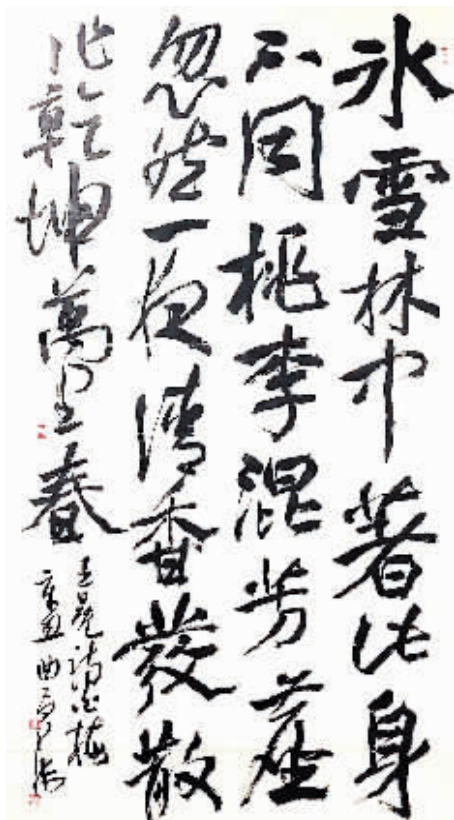 冰雪林中著此身
不同桃李混芳塵
忽然一夜清香發散
作乾坤萬里春
王冕詩白梅
辛丑曲